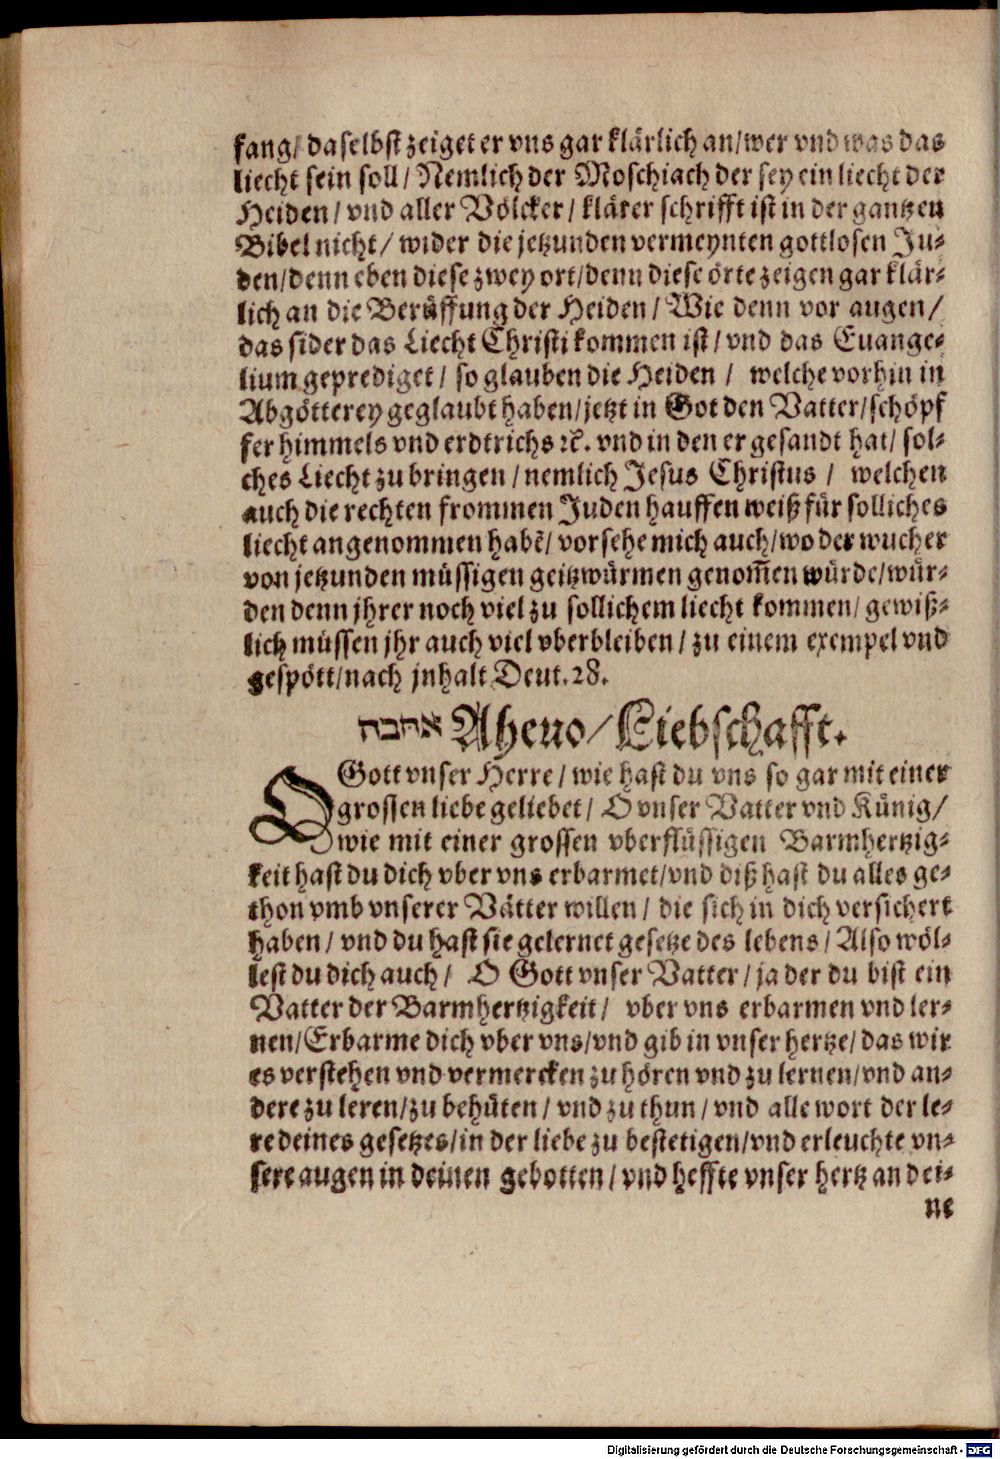 fang/ daselbst zeiget er vns gar klärlich an/wer vnd was das
liecht sein soll/ Nemlich der Moschiach der sey ein liecht der
Heiden/ vnd aller Völcker/ klärer schrifft ist in der gantzen
Bibel nicht/ wider die jetzunden vermeynten gottlosen Ju-
den/denn eben diese zwey ort/denn diese örte zeigen gar klär-
lich an die Berüffung der Heiden/ Wie denn vor augen/
das sider das Liecht Christi kommen ist/ vnd das Euange-
lium geprediget/ so glauben die Heiden/ welche vorhin in
Abgötterey geglaubt haben/jetzt in Got den Vatter/schöpf
fer himmels vnd erdtrichs ꝛc. vnd in den er gesandt hat/ sol-
ches Liecht zu bringen/ nemlich Jesus Christus/ welchen
auch die rechten frommen Juden hauffen weiß für solliches
liecht angenommen habẽ/ vorsehe mich auch/wo der wucher
von jetzunden müssigen geitzwürmen genom̃en würde/wür-
den denn jhrer noch viel zu sollichem liecht kommen/ gewiß-
lich müssen jhr auch viel vberbleiben/ zu einem exempel vnd
gespött/nach jnhalt Deut.28.
אהבה Aheuo/Liebschafft.
O Gott vnser Herre/ wie hast du vns so gar mit einer
grossen liebe geliebet/ O vnser Vatter vnd Künig/
wie mit einer grossen vberflüssigen Barmhertzig-
keit hast du dich vber vns erbarmet/vnd diß hast du alles ge-
thon vmb vnserer Vätter willen/ die sich in dich versichert
haben/ vnd du hast sie gelernet gesetze des lebens/ Also wöl-
lest du dich auch/ O Gott vnser Vatter/ ja der du bist ein
Vatter der Barmhertzigkeit/ vber vns erbarmen vnd ler-
nen/Erbarme dich vber vns/vnd gib in vnser hertze/ das wir
es verstehen vnd vermercken zu hören vnd zu lernen/vnd an-
dere zu leren/zu behüten/ vnd zu thun/ vnd alle wort der le-
re deines gesetzes/in der liebe zu bestetigen/vnd erleuchte vn-
sere augen in deinen gebotten/ vnd heffte vnser hertz an dei-
ne
Digitalisierung gefördert durch die Deutsche Forschungsgemeinschaft - DFG